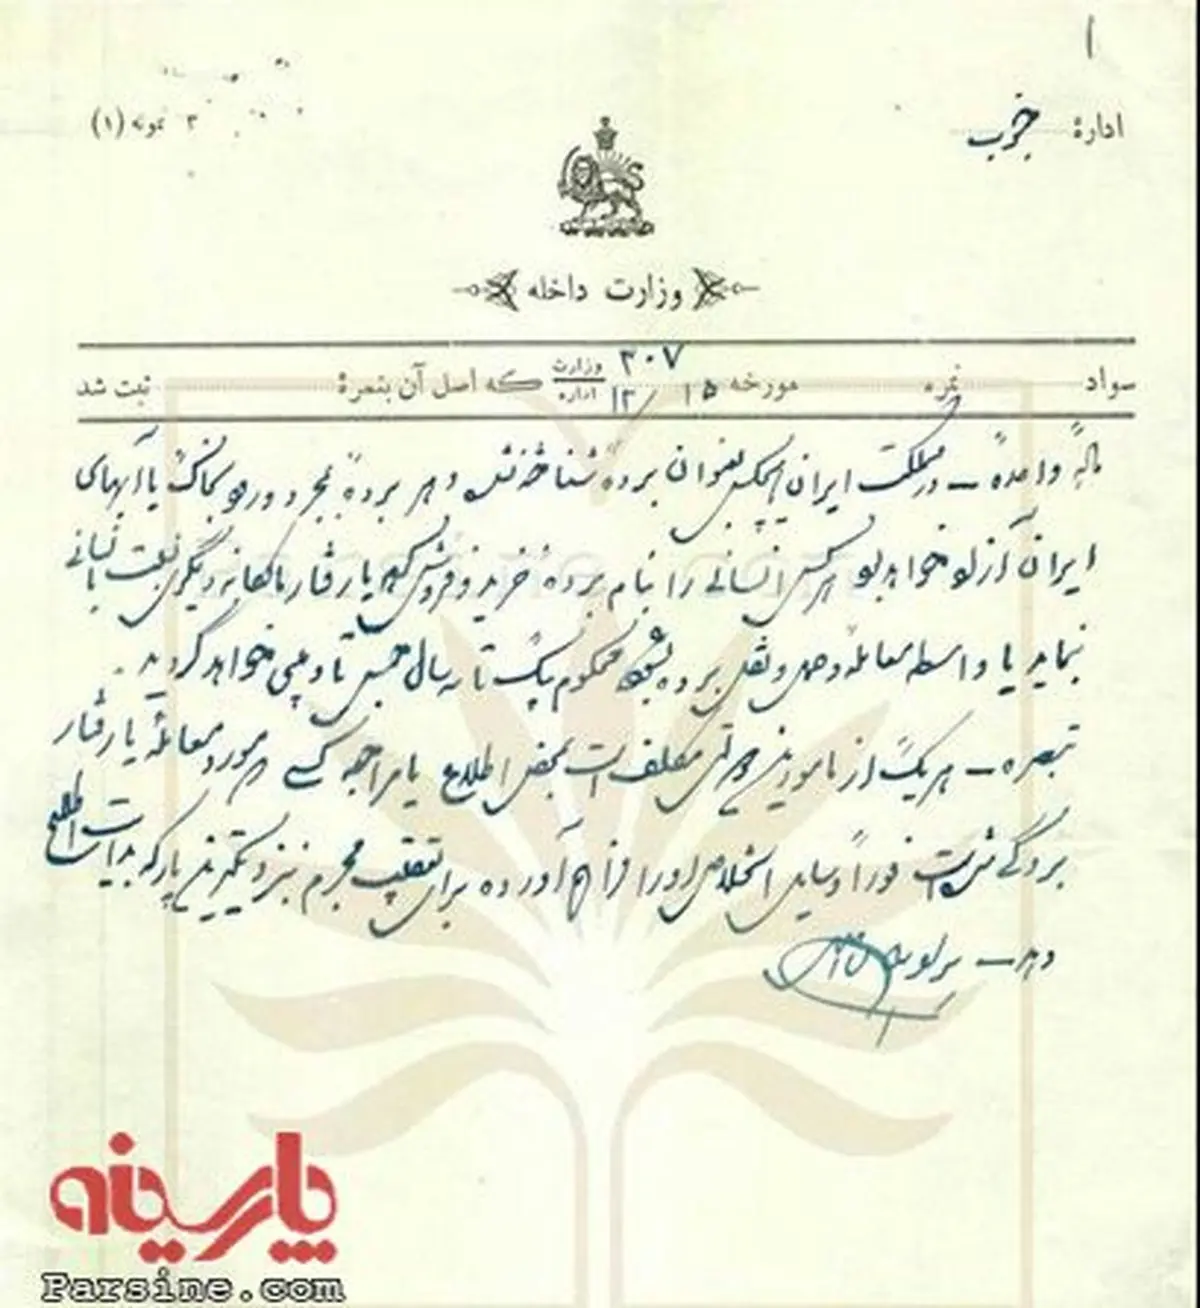 ۱
ادارهٔ جنوب
۳ نمونه (۱)
وزارت داخله
سواد نمره مورخه ۱۵ /۱۲ ۳۰۷ وزارت اداره که اصل آن بنمرهٔ ثبت شد
مادهٔ واحده – در مملکت ایران هیچکس بعنوان برده شناخته نشده و هر برده بمجرد ورود بخاک یا آبهای
ایران آزاد خواهد بود هر کس انسانی را بنام برده خرید و فروش کرده یا رفتار مالکانهٔ دیگری نسبت بانسانی
بنماید یا واسطه معامله و حمل و نقل برده بشود محکوم بیک تا سه سال حبس تأدیبی خواهد گردید.
تبصره – هر یک از مأمورین دولتی مکلف است بمحض اطلاع یا مراجعه کسی که مورد معامله یا رفتار
بردگی شده است فوراً وسایل استخلاص او را فراهم آورده برای تعقیب مجرم نزدیکترین پارکه بدایت اطلاع
دهد –
پارسینه
Parsine.com